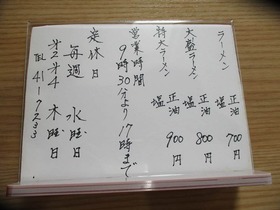 ラーメン 正油 塩 700円
大盛ラーメン 正油 塩 800円
特大ラーメン 正油 塩 900円
営業時間
9時30分より17時まで
定休日
毎週 水曜日
第2第4 木曜日
TEL 41-7233